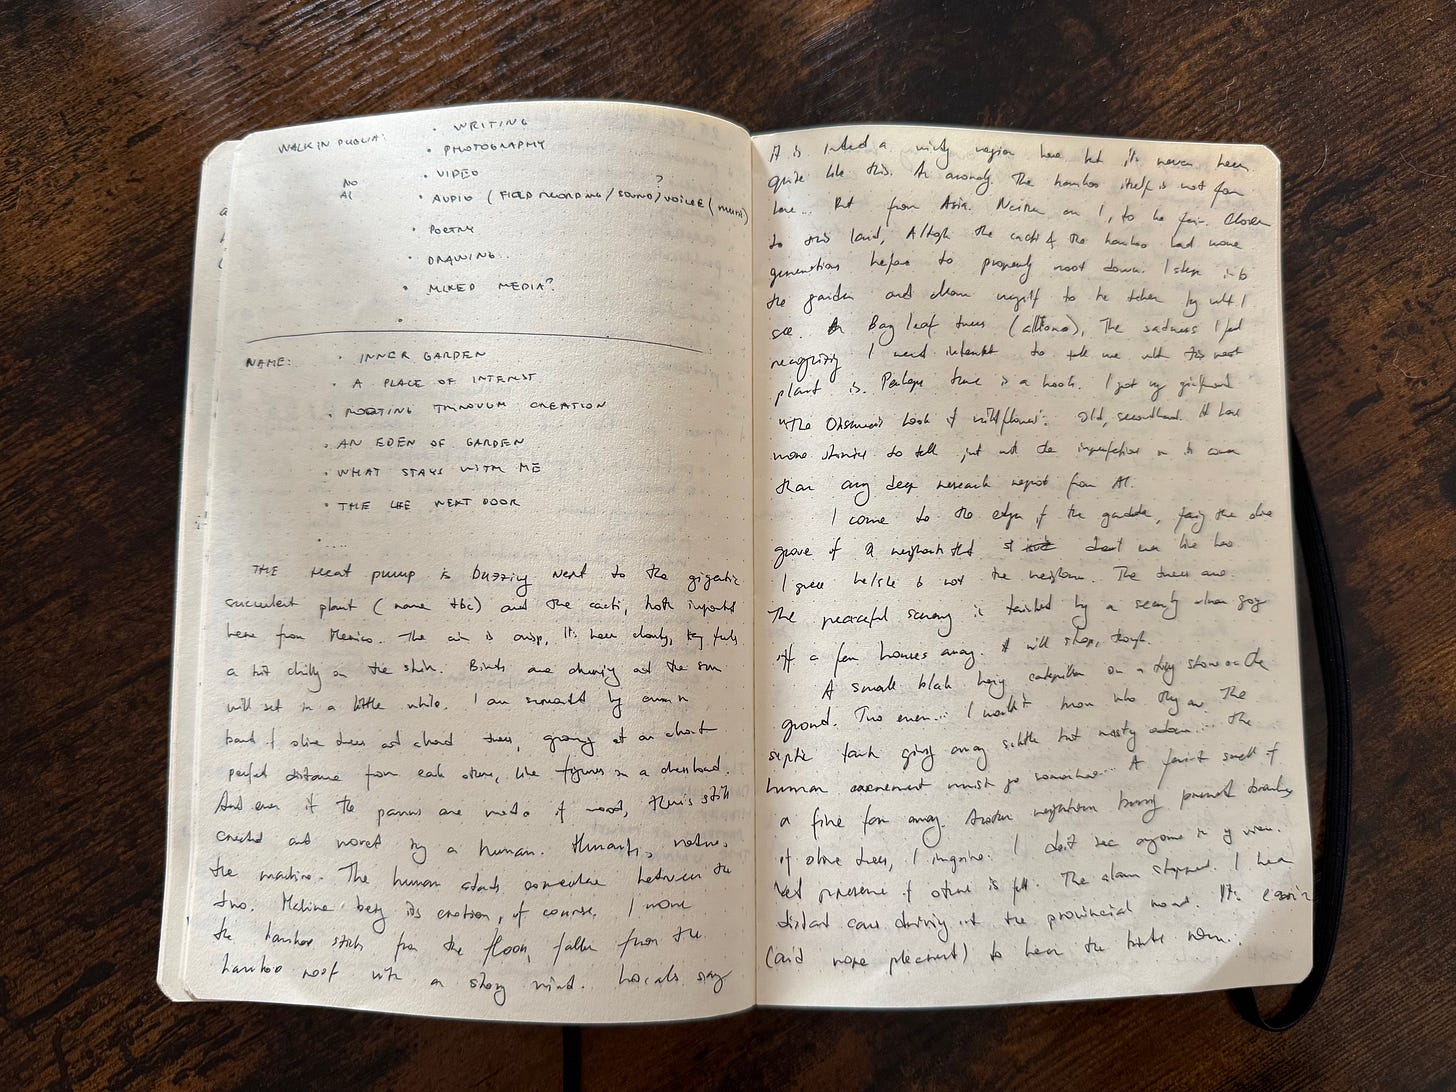 WALK IN PUGLIA:
NO
AI
• WRITING
• PHOTOGRAPHY
• VIDEO
• AUDIO (FIELD RECORDING / SOUND / VOICE (music)
?
• POETRY
• DRAWING..
• MIXED MEDIA?
•
NAME:
• INNER GARDEN
• A PLACE OF INTEREST
• ROOTING THROUGH CREATION
• AN EDEN OF GARDEN
• WHAT STAYS WITH ME
• THE LIFE NEXT DOOR
• ...
THE Heat pump is buzzing next to the gigantic
succulent plant (name tbc) and the cacti, both imported
here from Mexico. The air is crisp, it's been cloudy, feels
a bit chilly on the skin. Birds are and the sun
will set in a little while. I am surrounded by
of olive trees and almond trees, growing at an almost
perfect distance from each other, like figures on a chessboard.
And even if the pawns are made of wood, this is still
created and moved by a human. Humans, nature,
the machine. The human stands somewhere between the
two. Machine being its creation, of course. I move
the bamboo sticks from the floor, fallen from the
bamboo roof with a strong wind. Locals say
it is indeed a windy region here but it's never been
quite like this. An anomaly. The bamboo itself is not from
here... But from Asia. Neither am I, to be fair. Closer
to this land, Although the cacti & the bamboo had more
generations before to properly root down. I step into
the garden and allow myself to be taken by what I
see. Bay leaf trees (alloro), The sadness I feel
recognizing I need internet to tell me what this next
plant is. Perhaps there is a book. I got my girlfriend
"The Observer's book of wildflowers". Old, secondhand. It has
more stories to tell just with the imperfections on its cover
than any deep research report from AI.
I come to the edge of the garden, facing the olive
grove of a neighbor that doesn't even live here.
I guess he/she is not the neighbour. The trees are.
The peaceful scenery is tainted by a security alarm going
off a few houses away. It will stop, though.
A small black hairy caterpillar on a dry stone on the
ground. Two even... I wouldn't know who they are. The
septic tank giving away subtle but nasty odour... the
human excrement must go somewhere... A faint smell of
a fire far away. Another neighbour burning pruned branches
of olive trees, I imagine. I don't see anyone in my view.
Yet presence of others is felt. The alarm stopped. I hear
distant cars driving on the provincial road. It's easier
(and more pleasant) to hear the birds now..